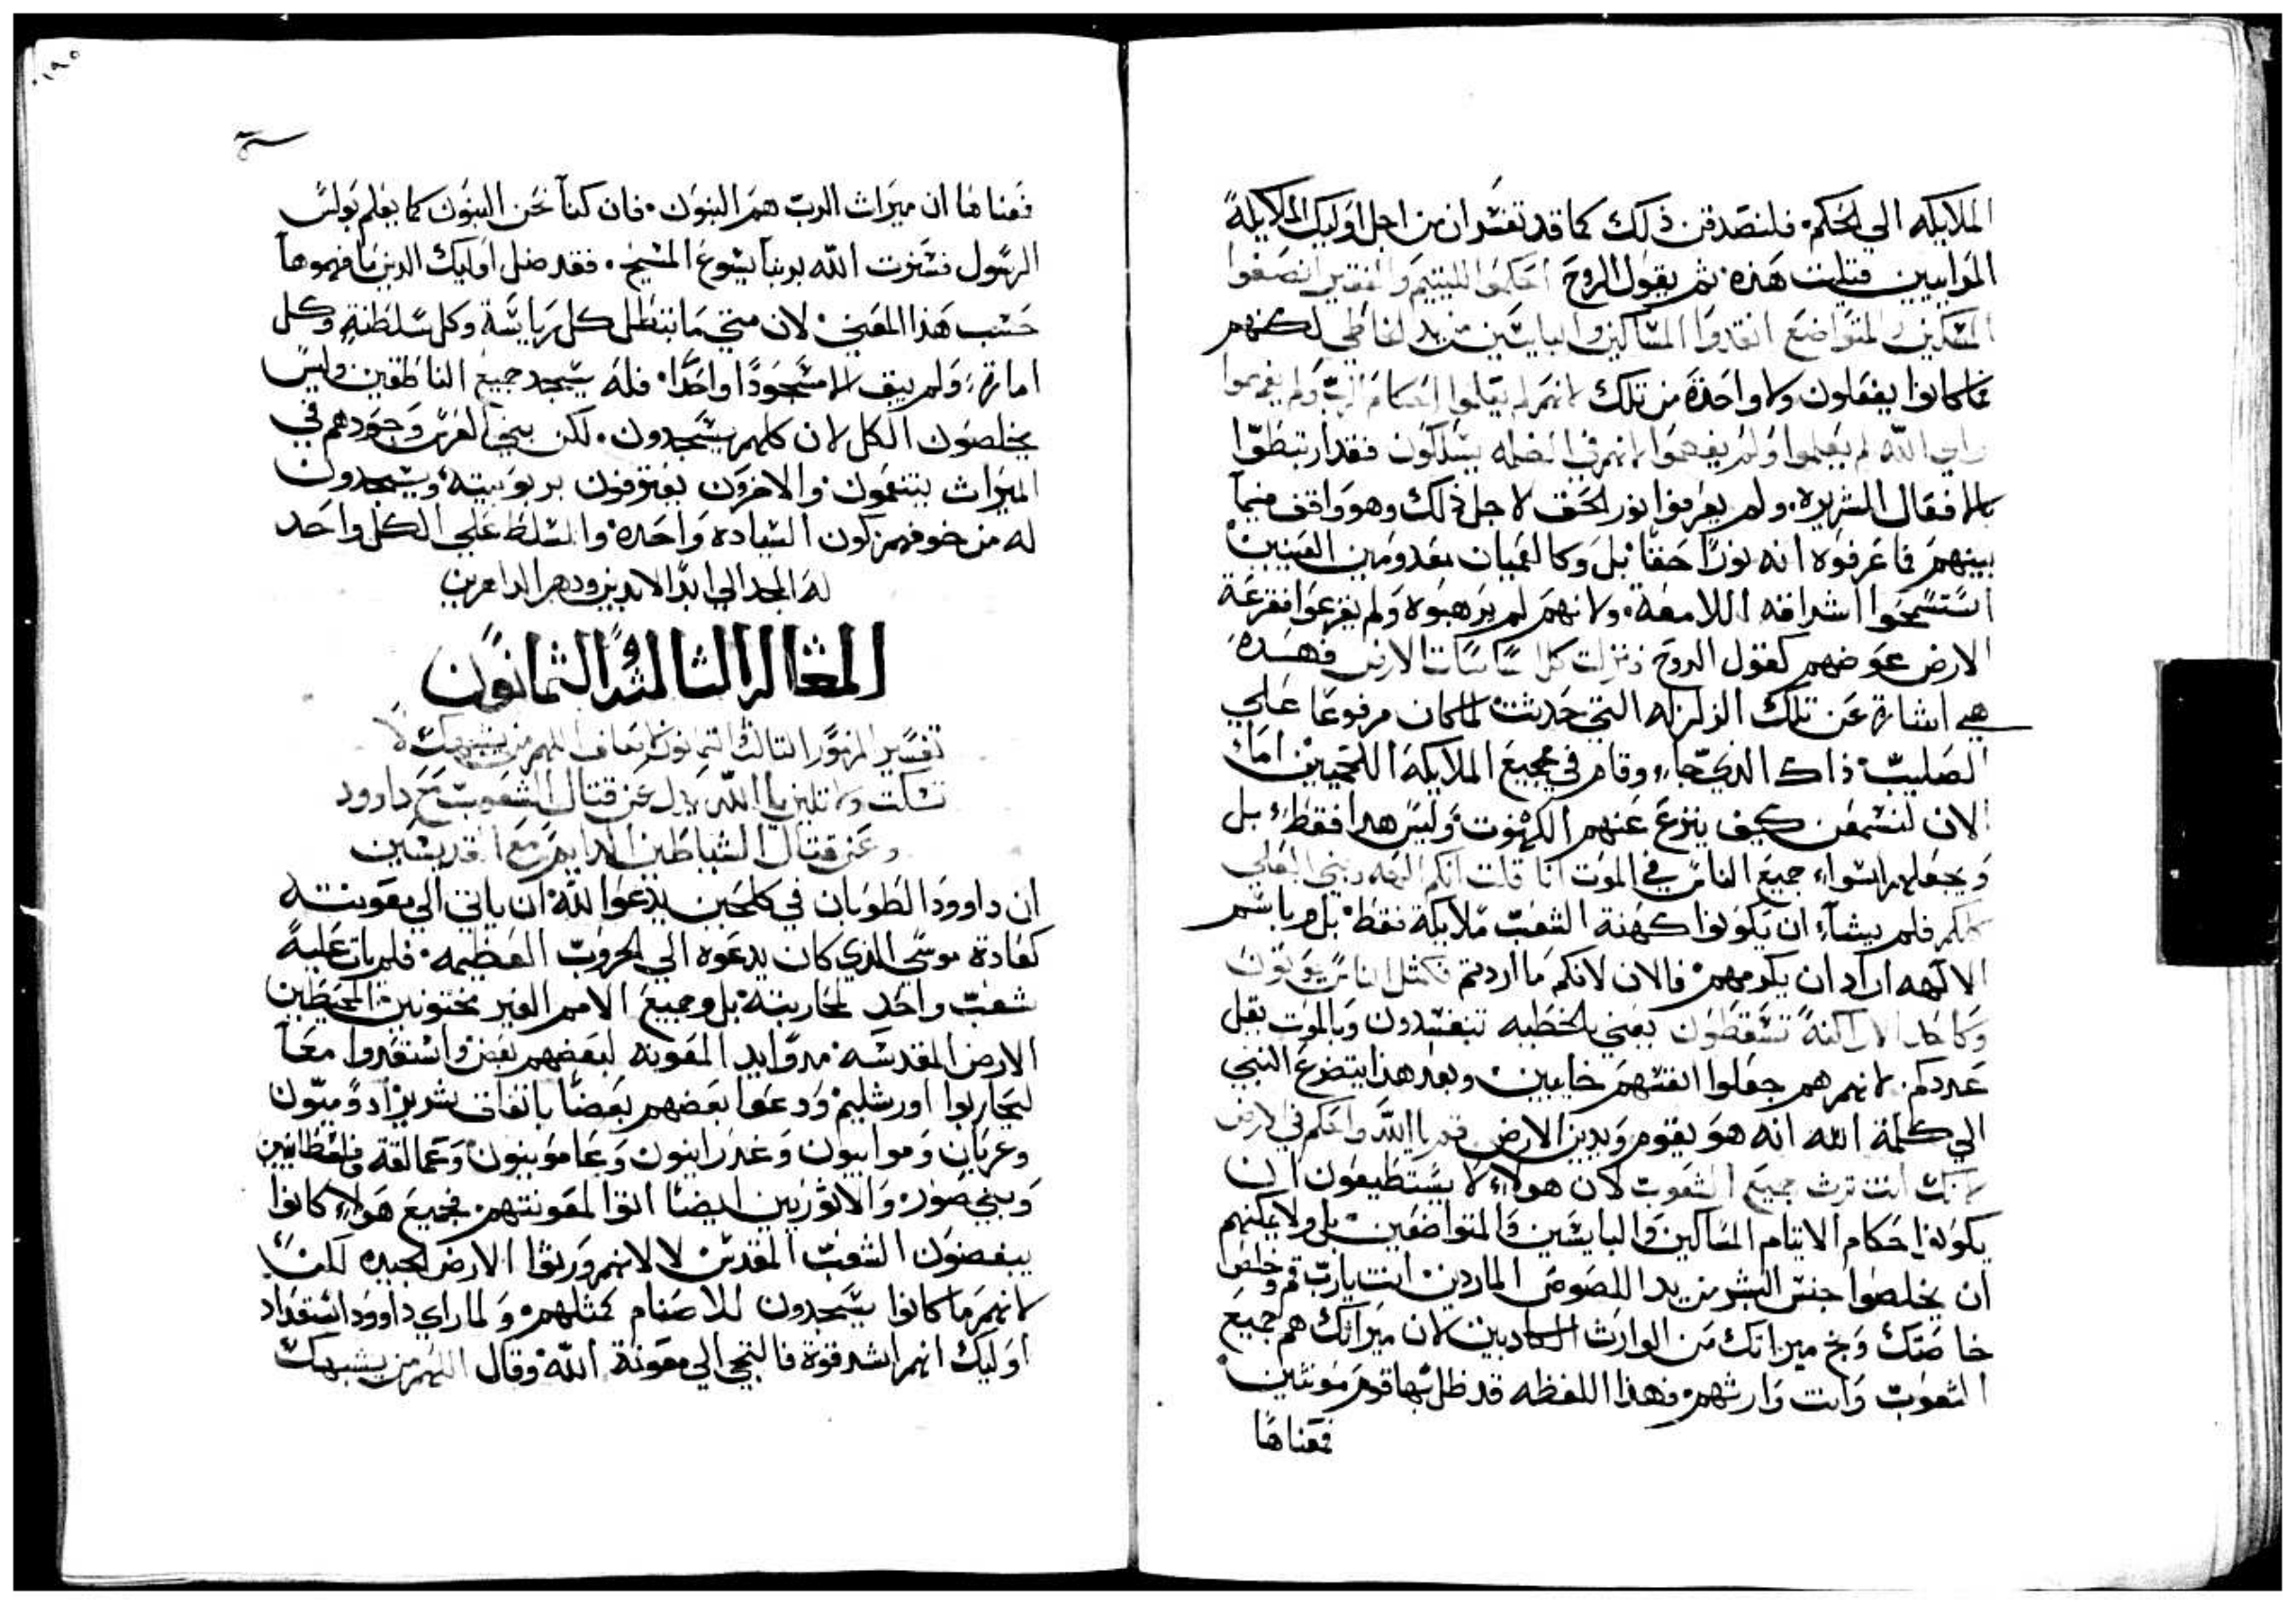 الملايكه الي الحكم. فلنصدقن ذلك كما قد تفسر ان من اجل اوليك الملايكة
الموابيين قتيلت هذه ثم يقول الروح احكموا لليتيم والفقير انصفوا
المسكين والمتواضع انقدوا المساكين والبايسين من يد الخاطي لكنهم
فما كانوا يفعلون ولا واحدة من تلك لانهم لم يعلموا احكام الرب ولم يفهموا
واي الله لم يعلموا ولم يفهموا لانهم في الضلمه يسلكون فقد ارتبطوا
بالافعال الشريره. ولم يعرفوا نور الحق لاجل ذلك وهو واقف فيما
بينهم فما عرفوه انه نورًا حقًا بل وكالعميان معدومين العينين
استسمجوا اشراقه اللامعة. ولانهم لم يرهبوه ولم يفزعوا فقزعة
الارض عوضهم كقول الروح وتزلزلت كل اساسات الارض فهذه
هي اشارة عن تلك الزلزله التي حدثت لما كان مرفوعًا علي
الصليب ذاك الذي جاء وقام في مجمع الملايكة اللحميين اما
الان لنسمعن كيف ينزع عنهم الكهنوت وليس هدا فقط بل
ويجعلهم اسواء جميع الناس في الموت انا قلت انكم الهه وبني العلي
كلكم فلم يشاء ان يكونوا كهنة الشعب ملايكة فقط بل وباسم
الالهه اراد ان يكرمهم فالان لانكم ما اردتم فكمثل الناس تموتون
وكاحد الاراكنة تسقطون يعني بالخطيه تنفسدون وبالموت يقل
عددكم. لانهم هم جعلوا انفسهم خايبين وبعد هذا يتضرع النبي
الي كلمة الله انه هو يقوم ويدين الارض قم يا الله واحكم في الارض
لانك انت ترث جميع الشعوب لان هولاء لا يستطيعون ان
يكونوا حكام الايتام المساكين والبايسين والمتواضعين بل ولا يمكنهم
ان يخلصوا جنس البشر من يدا اللصوص الماردين انت يارب قم وخلص
خاصتك ونج ميراتك من الوارث الكادبين لان ميراتك هم جميع
الشعوب وانت وارثهم فهذا اللفظه قد ظل بها قوم مونثين
فمعناها
١٩٥
فمعناها ان ميراث الرب هم البنون. فان كنا نحن البنون كما يعلم بولس
الرسول فسنرت الله بربنا يسوع المسيح. فقد ضل اوليك الدين ما فهموها
حسب هذا المعني لان متي ما تبطل كل رياسة وكل سلطنة وكل
امارة ولم يبق الا مسجودًا واحدًا فله يسجد جميع الناطقين وليس
يخلصون الكل لان كلهم يسجدون. لكن بني العرس وجودهم في
الميراث يتنعمون والاخرون يعترفون بربوبيته ويسجدون
له من خوفهم كون السيادة واحده والتسلط علي الكل واحد
له المجد الي ابد الابدين ودهر الداهرين
المقاله الثالثة والثمانون
تفسير المزمور الثالث والثمانون ايضاف اللهم من يشبهك لا
تسكت ولا تلين يا الله يدل عن قتال الشعوب مع داوود
وعن قتال الشياطين الدايم مع القديسين
ان داوود الطوبان في كل حين يدعوا الله ان ياتي الي معونته
كعادة موسي الذي كان يدعوه الي الحروب العظيمه. فلم يات عليه
شعب واحد لمحاربته بل وجميع الامم الغير مختونين المحيطين
الارض المقدسة مدوا يد المعونه لبعضهم بعض واستعدوا معًا
ليحاربوا اورشليم ودعوا بعضهم بعضًا باتفاق شرير ادوميون
وعربان وموابيون وعبرانيون وعامونيون وعمالقة وفلسطانيين
وبني صور والاثوريين ايضًا اتوا لمعونتهم فجميع هولاء كانوا
يبغضون الشعب المقدس لا لانهم ورثوا الارض الجيده لكن
لانهم ما كانوا يسجدون للاصنام كمثلهم ولما راي داوود استعداد
اوليك انهم اشد قوة فالتجي الي معونة الله وقال اللهم من يشبهك